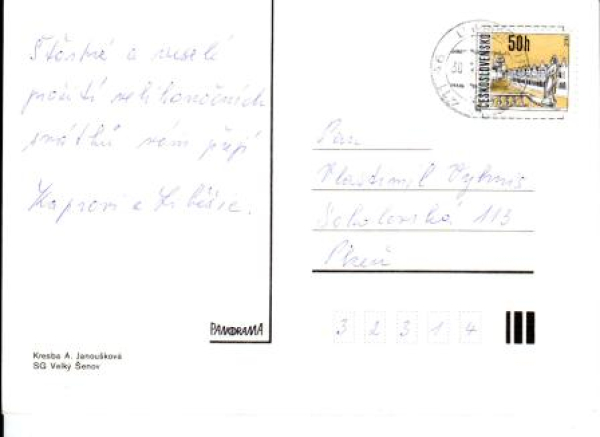 Šťastné a veselé
prožití velikonočních
svátků vám přejí
Kaprovi a Liběšic.
PANORAMA
Kresba A. Janoušková
SG Velký Šenov
50h
ČESKOSLOVENSKO
Pan
Vlastimil
Sokolovská 113
Plzeň
3 2 3 1 4